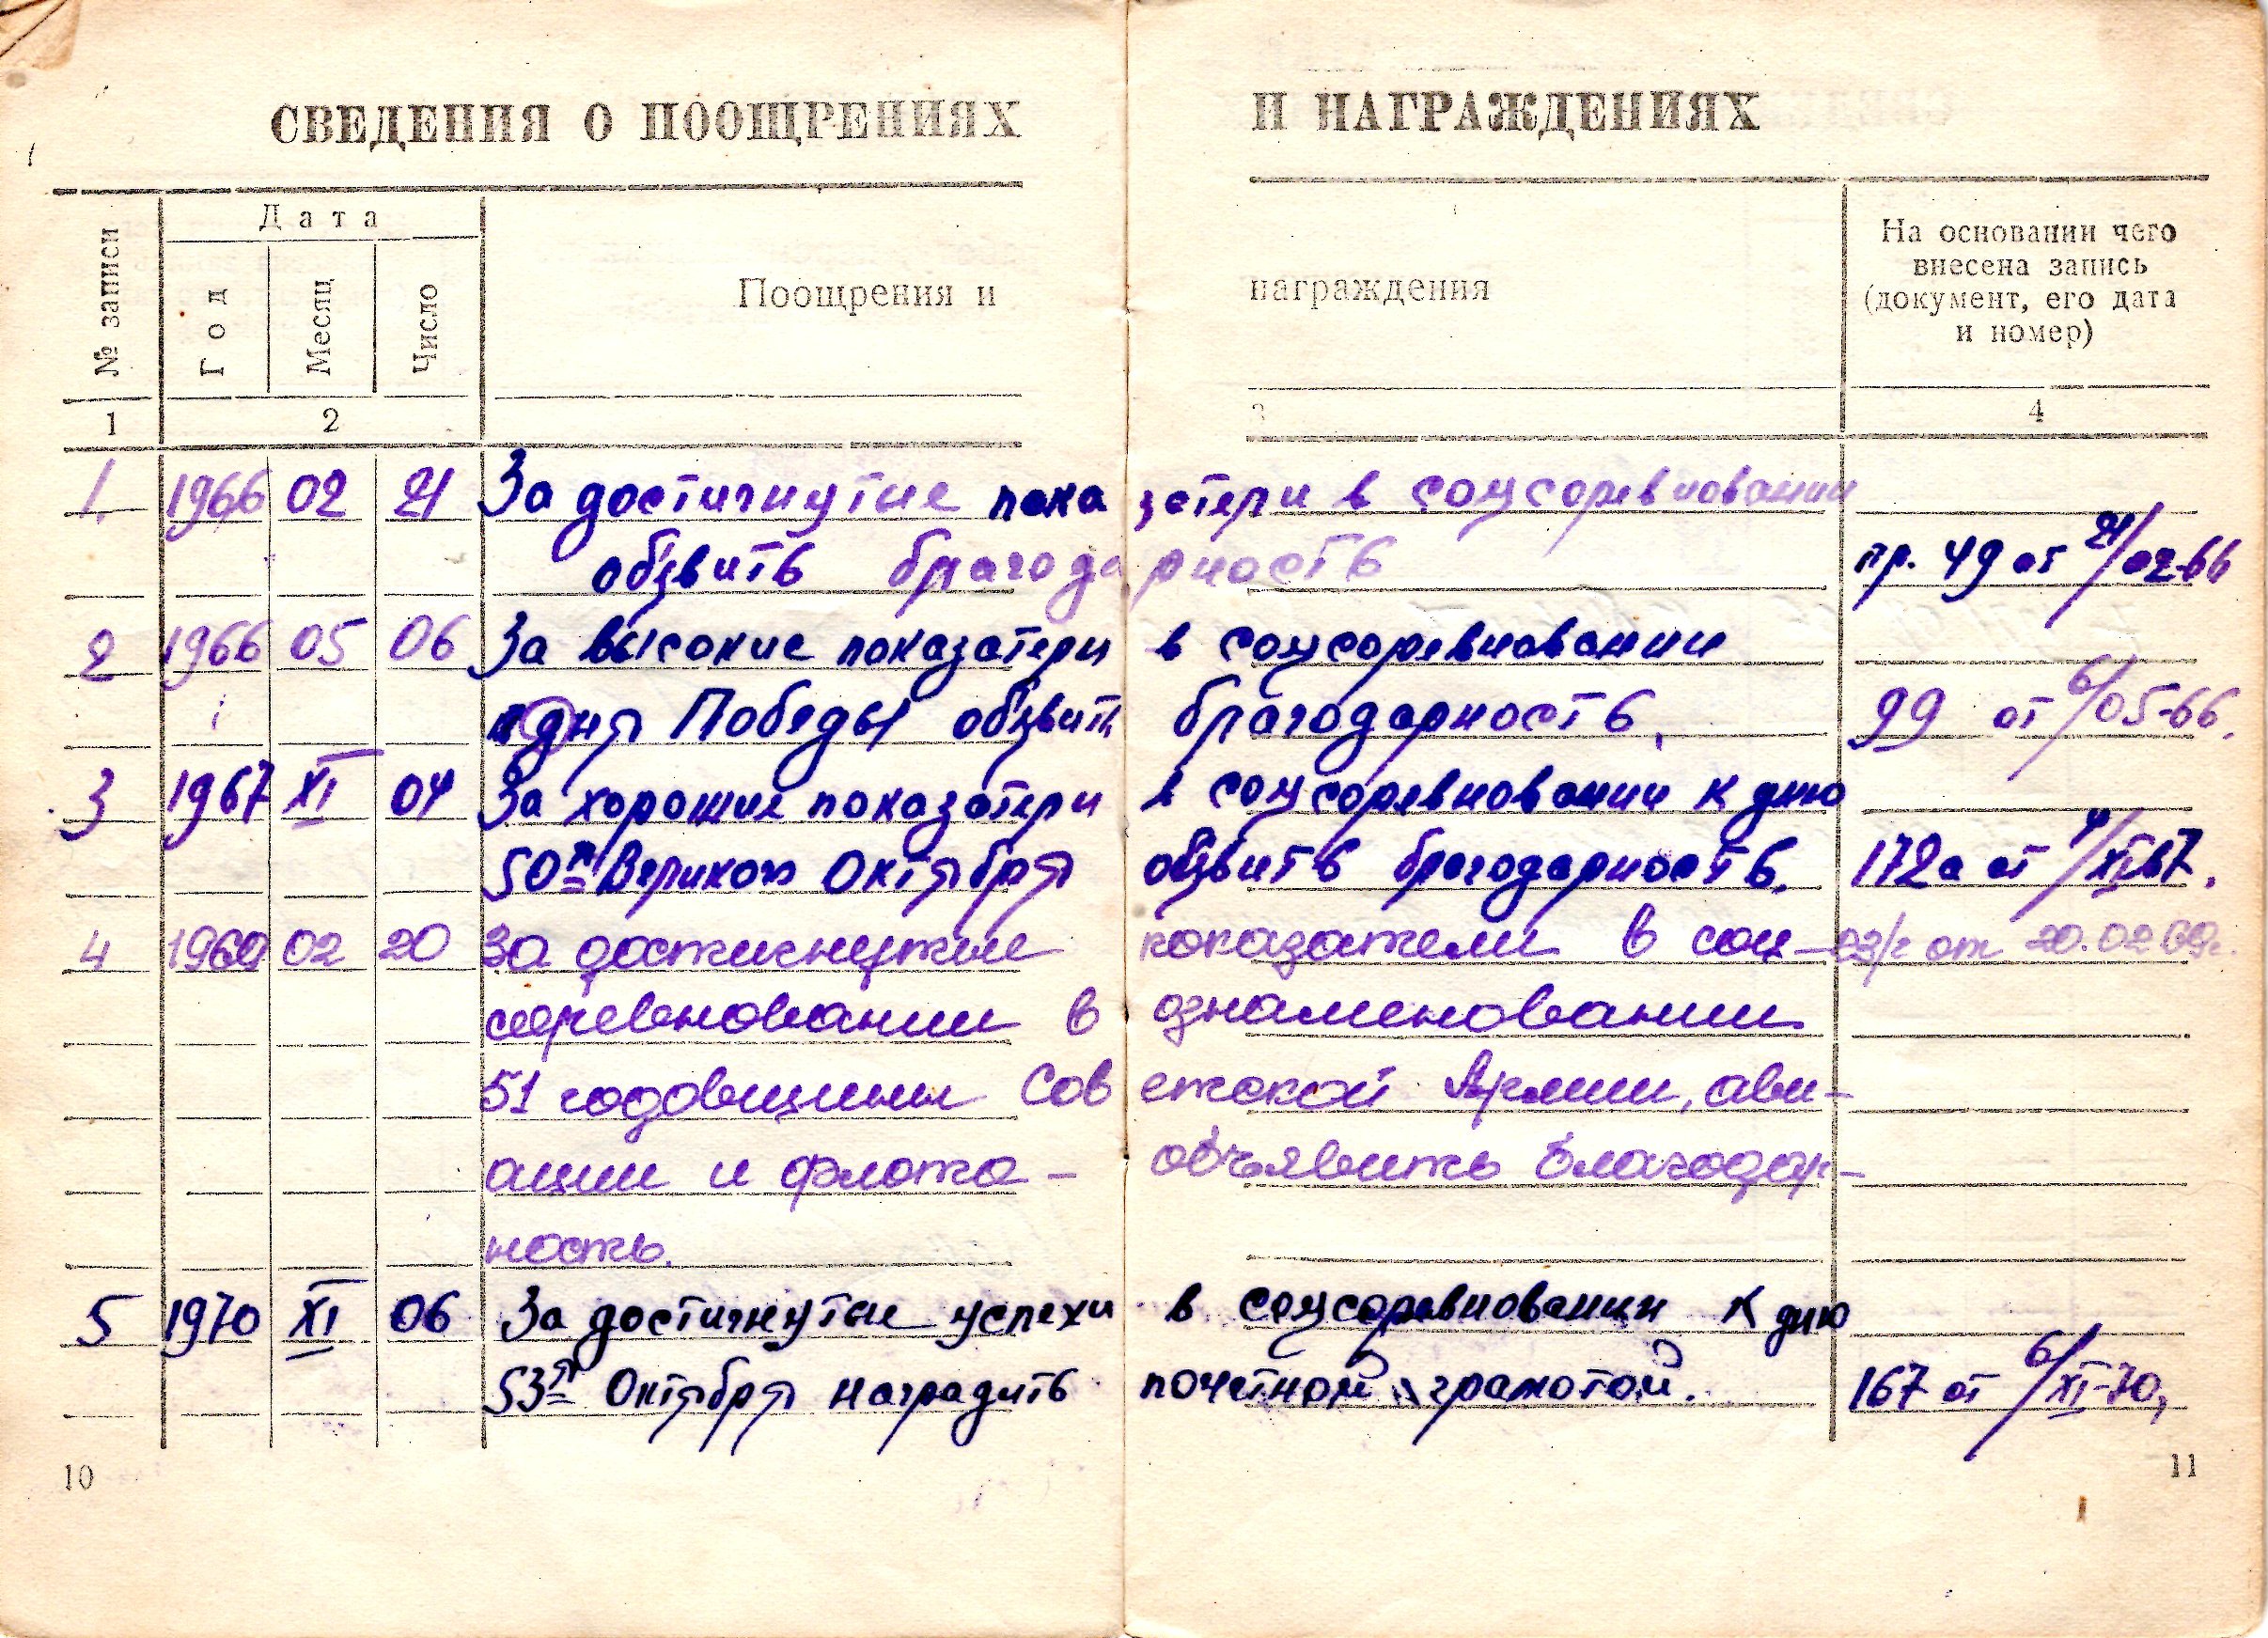 СВЕДЕНИЯ О ПООЩРЕНИЯХ И НАГРАЖДЕНИЯХ
№ записи
Дата
Год
Месяц
Число
Поощрения и награждения
На основании чего
внесена запись
(документ, его дата
и номер)
1 2 3 4
1. 1966 02 21 За достигнутые показатели в соцсоревновании
обявить благодарность пр. 49 от 21/02-66
2 1966 05 06 За высокие показатели в соцсоревновании
к дня Победы обявить благодарность. 99 от 6/05-66.
3 1967 XI 04 За хорошие показатели в соцсоревновании к дню
50я Великого Октября обявить благодарность. 172а от 4/XI 67.
4 1969 02 20 За достигнутые показатели в соц- 22/к от 20.02 69г.
соревновании в ознаменовании
51 годовщины Советской Армии, ави-
ации и флота - объявить благодар-
ность.
5 1970 XI 06 За достигнутые успехи в соцсоревновании к дню
53я Октября наградить почетной грамотой. 167 от 6/XI-70,
10
11